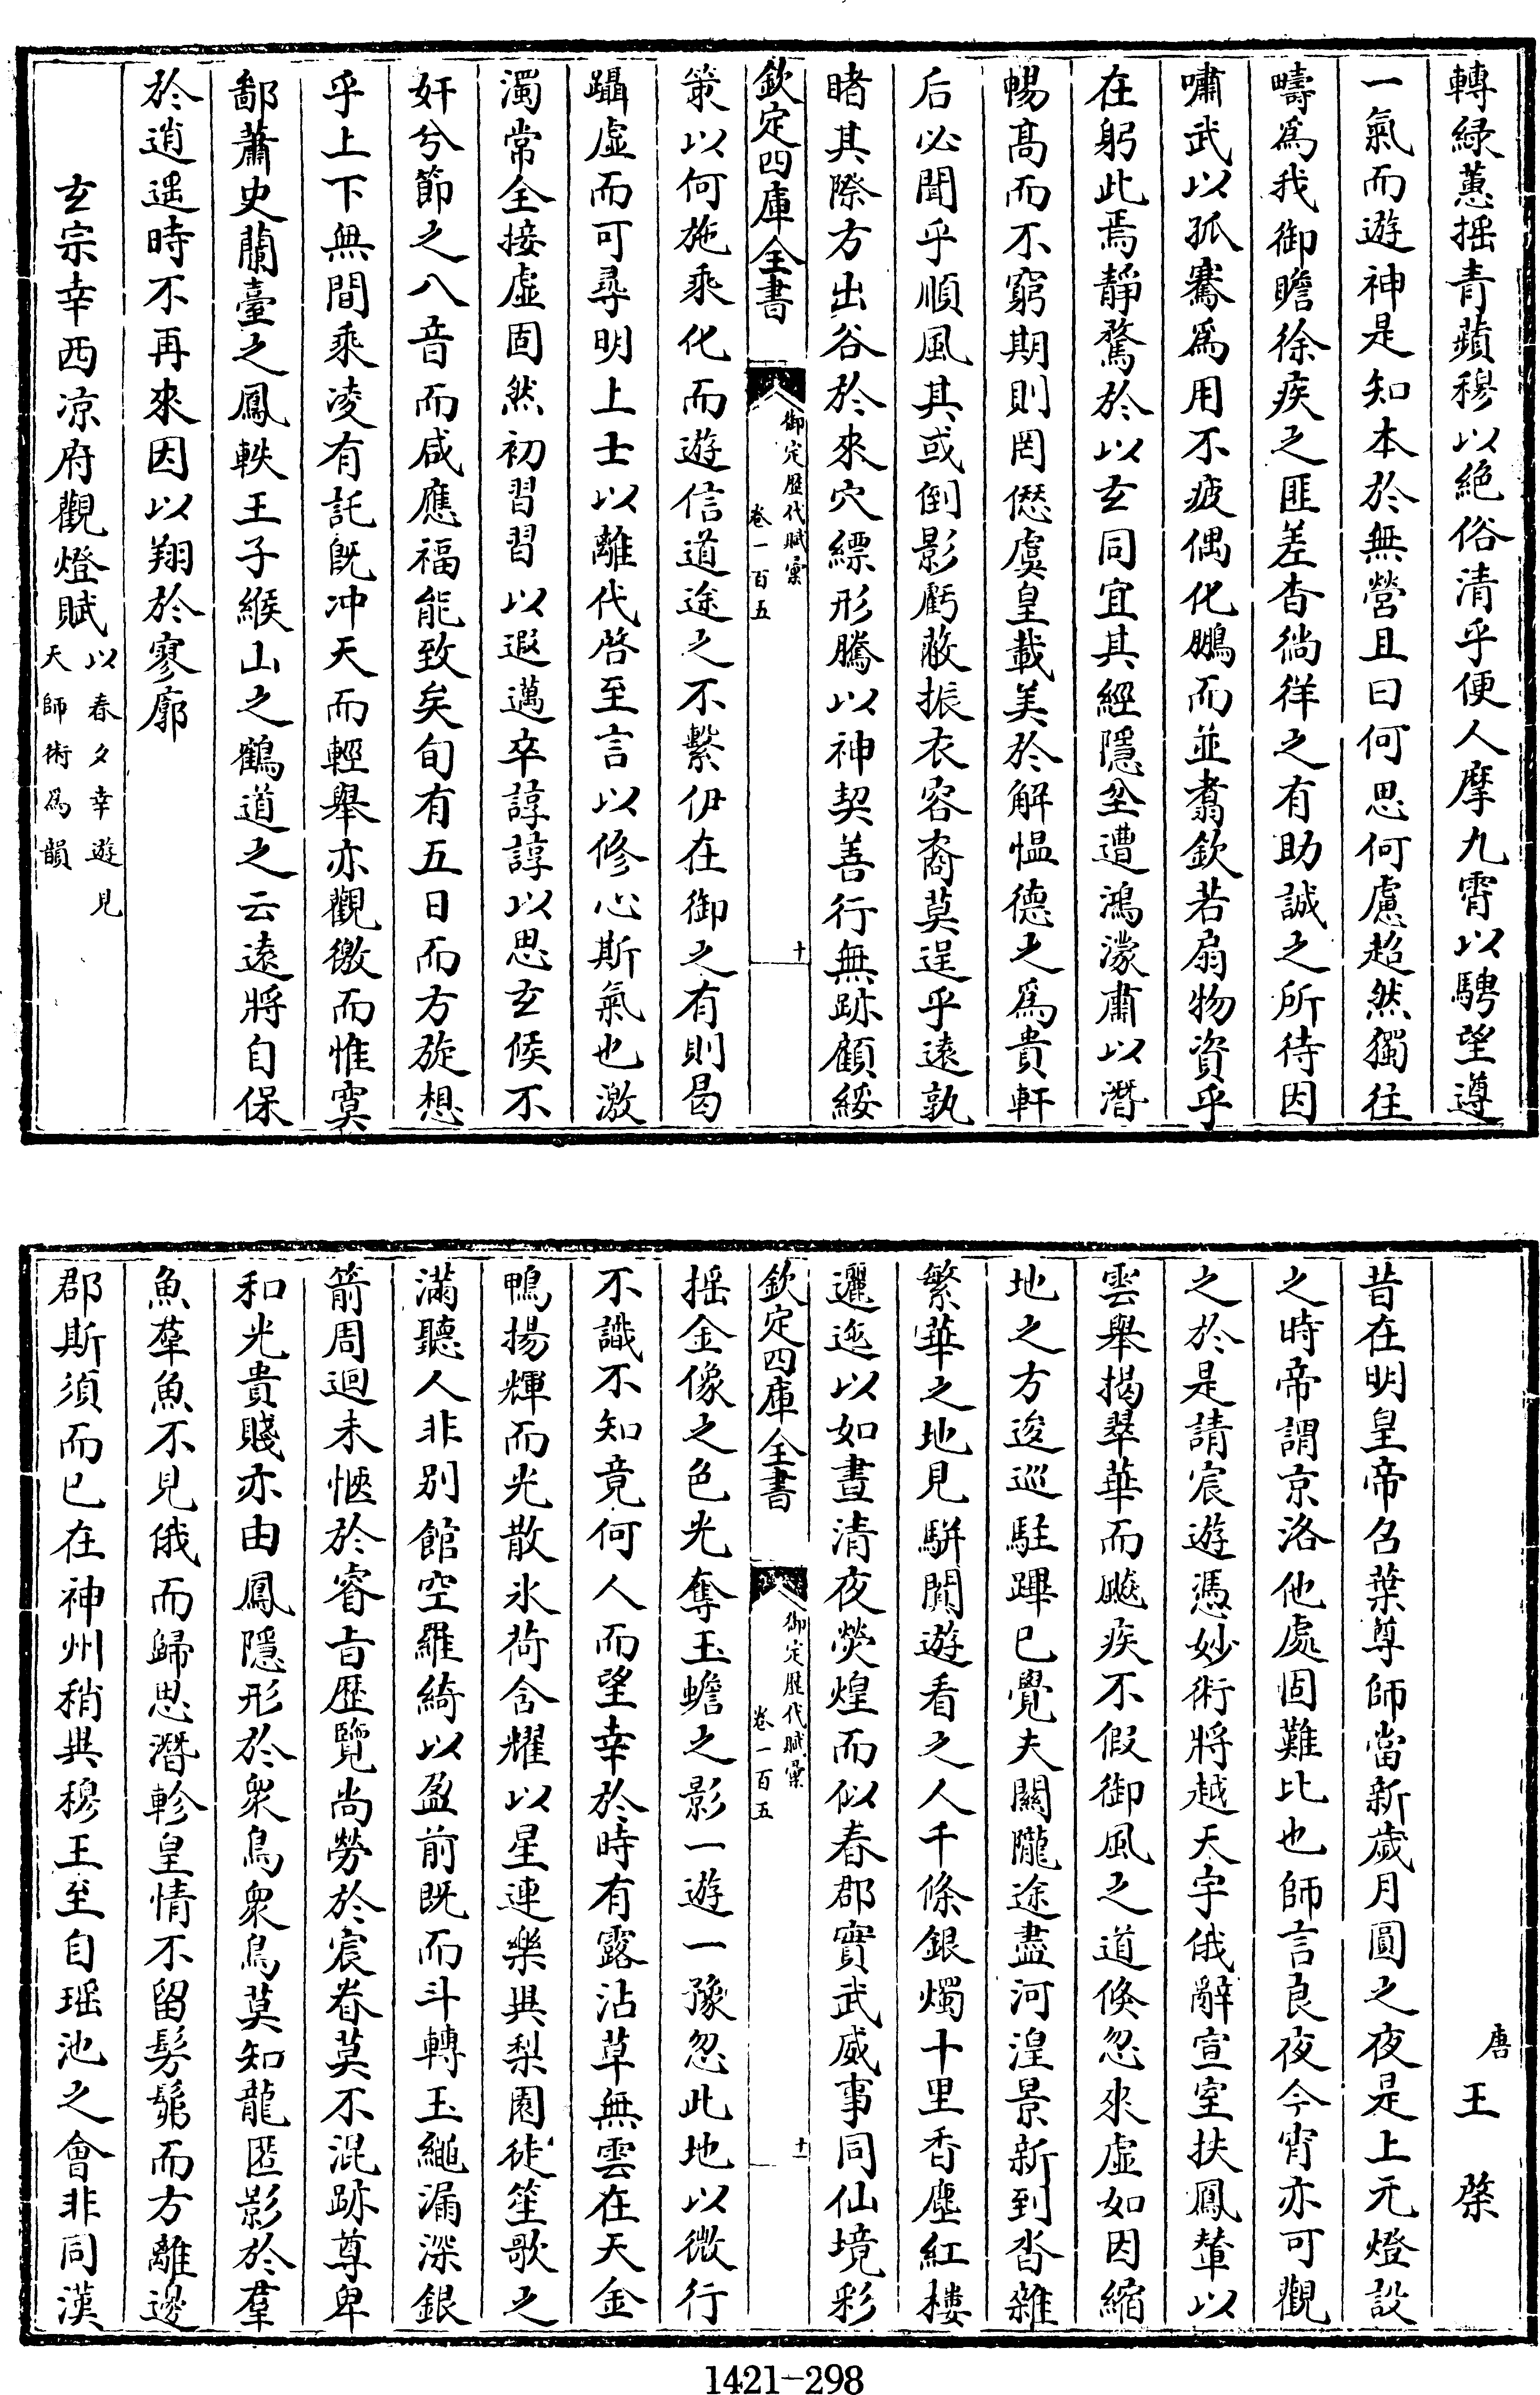 轉緑蕙揺青蘋穆以絶俗清乎便人摩九霄以騁望遵
一氣而遊神是知本於無營且曰何思何慮超然獨往
疇為我御瞻徐疾之匪差杳徜徉之有助誠之所待因
嘯武以孤騫為用不疲偶化鵬而並翥欽若扇物資乎
在躬此焉靜騖於以玄同宜其經隱坌遭鴻濛肅以潛
暢高而不窮期則罔僁虞皇載美於解愠德之為貴軒
后必聞乎順風其或倒影虧蔽振衣容裔莫逞乎遠孰
睹其際方出谷於來穴縹形騰以神契善行無跡顧綏
欽定四庫全書
御定歷代賦彙
卷一百五
十
策以何施乘化而遊信道途之不繫伊在御之有則曷
躡虛而可尋明上士以離代啓至言以修心斯氣也激
濁常全接虛固然初習習以遐邁卒諄諄以思玄候不
奸兮節之八音而咸應福能致矣旬有五日而方旋想
乎上下無間乘凌有託旣冲天而輕舉亦觀徼而惟寞
鄙蕭史蘭臺之鳳軼王子緱山之鶴道之云遠將自保
於逍遥時不再來因以翔於寥廓
玄宗幸西凉府觀燈賦以春夕幸遊見天師術為韻
唐王棨
昔在明皇帝召葉尊師當新歲月圓之夜是上元燈設
之時帝謂京洛他處固難比也師言良夜今宵亦可觀
之於是請宸遊憑妙術將越天宇俄辭宣室扶鳳輦以
雲舉揭翠華而飈疾不假御風之道倏忽來虛如因縮
地之方逡巡駐蹕已覺夫關隴途盡河湟景新到沓雜
繁華之地見駢闐遊看之人千條銀燭十里香塵紅樓
邐迤以如晝清夜熒煌而似春郡實武威事同仙境彩
欽定四庫全書
御定歷代賦彙
卷一百五
十一
揺金像之色光奪玉蟾之影一遊一豫忽此地以微行
不識不知竟何人而望幸於時有露沾草無雲在天金
鴨揚輝而光散氷荷含耀以星連樂與梨園徒笙歌之
滿聽人非別館空羅綺以盈前既而斗轉玉繩漏深銀
箭周迴未愜於睿旨歷覽尚勞於宸眷莫不混跡尊卑
和光貴賤亦由鳳隱形於衆鳥衆鳥莫知龍匿影於羣
魚羣魚不見俄而歸思潛軫皇情不留髣髴而方離邊
郡斯須而已在神州稍與穆王至自瑶池之會非同漢
1421-298